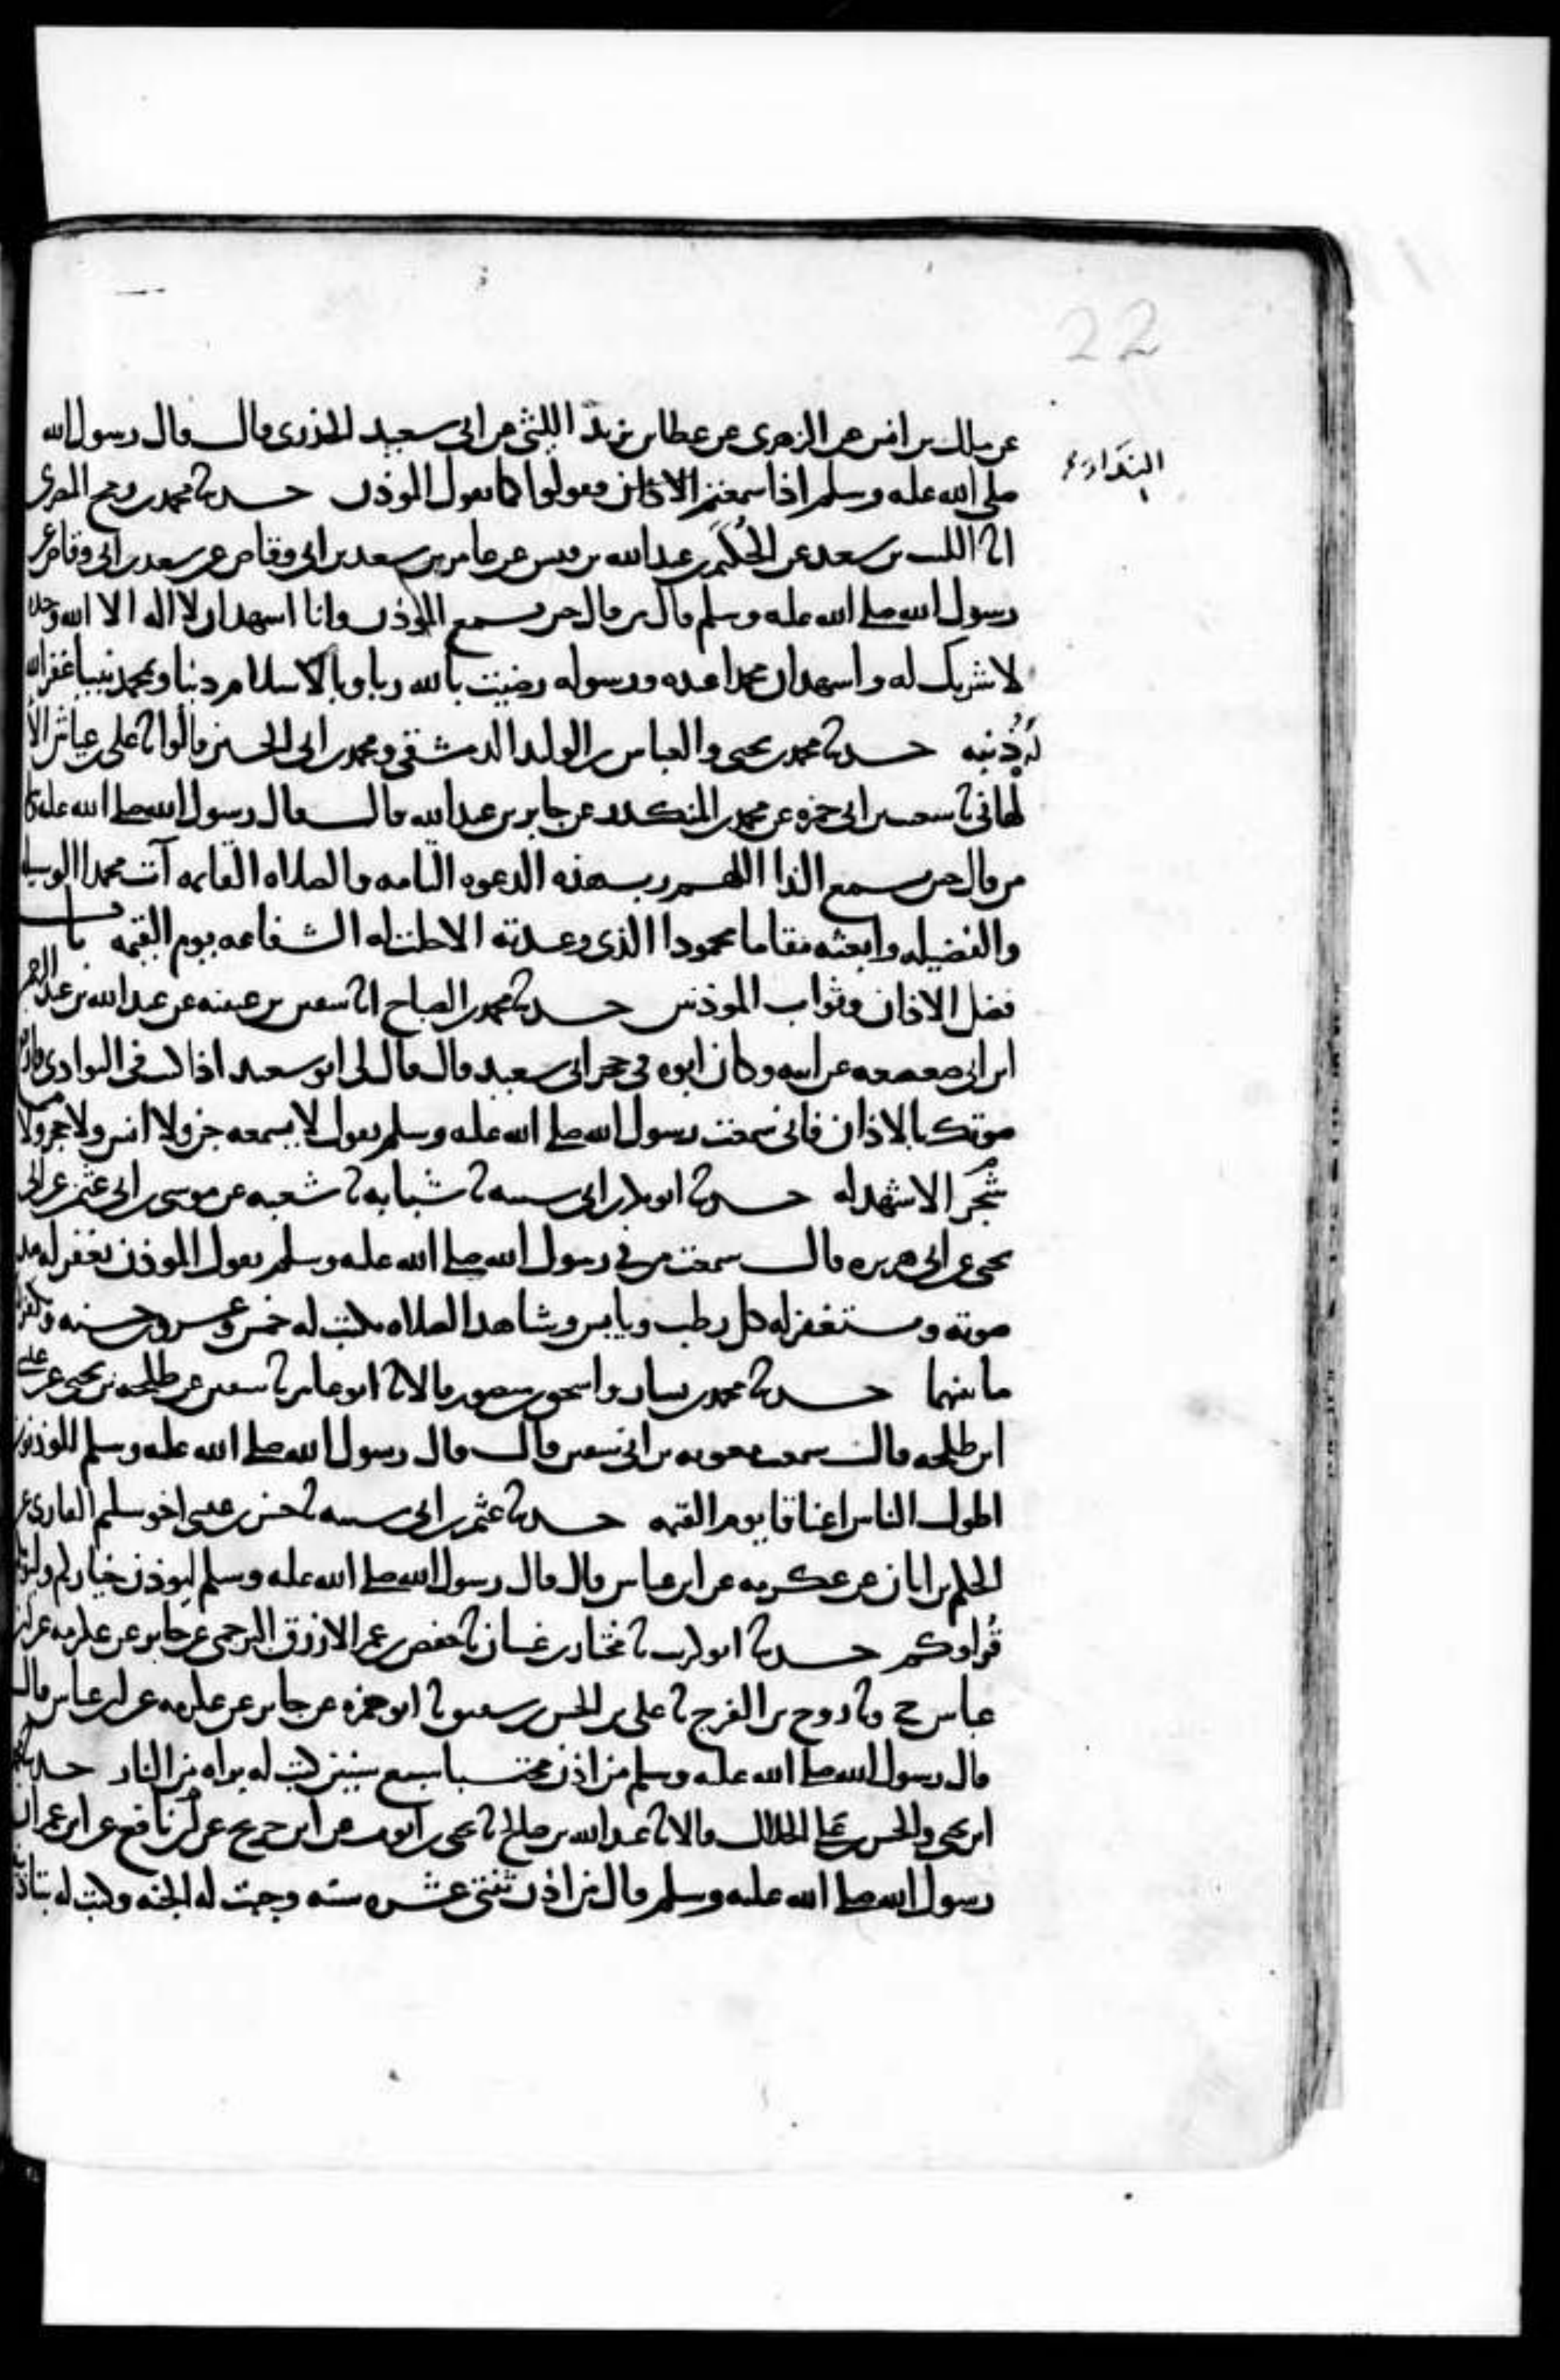 22
عن ملك بن انس عن الزهرى عن عطا بن يزيد الليثى عن ابى سعيد الخدرى قال قال رسول الله
صلى الله عليه وسلم اذا سمعتم الاذان فقولوا كما يقول الموذن حدثنا محمد بن رمح المصرى
النداء
انا الليث بن سعد عن الحُكَيم بن عبد الله بن قيس عن عامر بن سعد بن ابى وقاص عن سعد بن ابى وقاص عن
رسول الله صلى الله عليه وسلم قال من قال حين يسمع الموذن وانا اشهد ان لا اله الا الله وحده
لا شريك له واشهد ان محمدا عبده ورسوله رضيت بالله ربا وبالاسلام دينا وبمحمد نبيا غفر الله
له ذنبه حدثنا محمد بن يحيى والعباس بن الوليد الدمشقى ومحمد بن ابى الحسين قالوا ثنا على بن عياش الا
لهانى ثنا شعيب بن ابى حمزه عن محمد بن المنكدر عن جابر بن عبد الله قال قال رسول الله صلى الله عليه وسلم
من قال حين يسمع الندا اللهم رب هذه الدعوه التامه والصلاه القايمه آت محمدا الوسيله
والفضيله وابعثه مقاما محمودا الذى وعدته الا حلت له الشفاعه يوم القيمه باب
فضل الاذان وثواب الموذنين حدثنا محمد بن الصباح انا سفين بن عيينه عن عبد الله بن عبد الرحمن
ابن ابى صعصعه عن ابيه وكان ابوه فى حجر ابى سعيد قال قال لى ابو سعيد اذا كنت فى البوادى فارفع
صوتك بالاذان فانى سمعت رسول الله صلى الله عليه وسلم يقول لا يسمعه جن ولا انس ولا حجر ولا
شجر الا شهد له حدثنا ابو بكر بن ابى شيبه ثنا شبابه ثنا شعبه عن موسى بن ابى عثمن عن ابى
يحيى عن ابى هريره قال سمعت من فى رسول الله صلى الله عليه وسلم يقول الموذن يغفر له مد
صوته ويستغفر له كل رطب ويابس وشاهد الصلاه يكتب له خمس وعشرون حسنه ويكفر
ما بينهما حدثنا محمد بن بشار واسحق بن منصور قالا ثنا ابو عامر ثنا سفين عن طلحه بن يحيى عن عيسى
ابن طلحه قال سمعت معويه بن ابى سفين قال قال رسول الله صلى الله عليه وسلم الموذنون
اطول الناس اعناقا يوم القيمه حدثنا عثمن بن ابى شيبه ثنا حسين بن عيسى اخو سليم القارى عن
الحكم بن ابان عن عكرمه عن ابن عباس قال قال رسول الله صلى الله عليه وسلم ليوذن خياركم وليومكم
قراوكم حدثنا ابو كريب ثنا مختار بن غسان ثنا حفص بن عمر الازرق البرجمى عن جابر عن عكرمه عن ابن
عباس ح وثنا روح بن الفرج ثنا على بن الحسن بن شقيق ثنا ابو حمزه عن جابر عن عكرمه عن ابن عباس قال
قال رسول الله صلى الله عليه وسلم من اذن محتسبا سبع سنين كتب له براه من النار حدثنا محمد
ابن يحيى والحسن بن على الخلال قالا ثنا عبد الله بن صالح ثنا يحيى بن ايوب عن ابن جريج عن نافع عن ابن عمر ان
رسول الله صلى الله عليه وسلم قال من اذن ثنتى عشره سنه وجبت له الجنه وكتب له بتاذينه